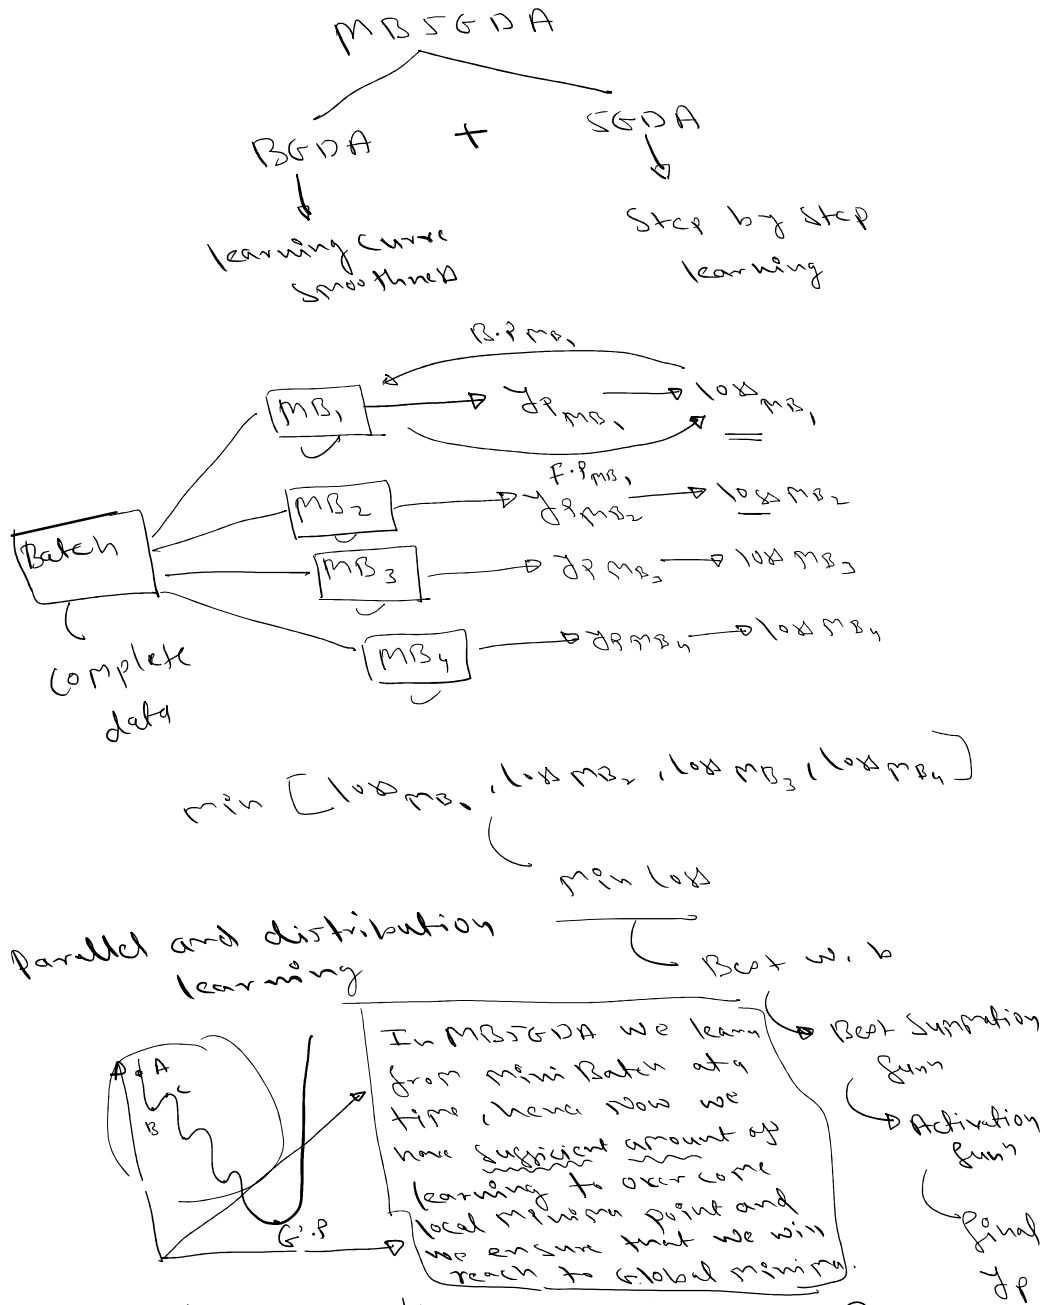 MBSGDA
BGDA + SGDA
learning curve
smoothness
Step by step
learning
B.P MB1
MB1 yP MB1 loss MB1
F.P MB1
MB2 yP MB2 loss MB2
Batch
MB3 yP MB3 loss MB3
MB4 yP MB4 loss MB4
complete
data
min [loss MB1, loss MB2, loss MB3, loss MB4]
min loss
Parallel and distribution
learning
Best w, b
Best Summation
funn
Activation
funn
final
yP
A
B
C
G.P
In MBSGDA we learn
from mini Batch at a
time, hence now we
have sufficient amount of
learning to over come
local minima point and
we ensure that we will
reach to Global minima.